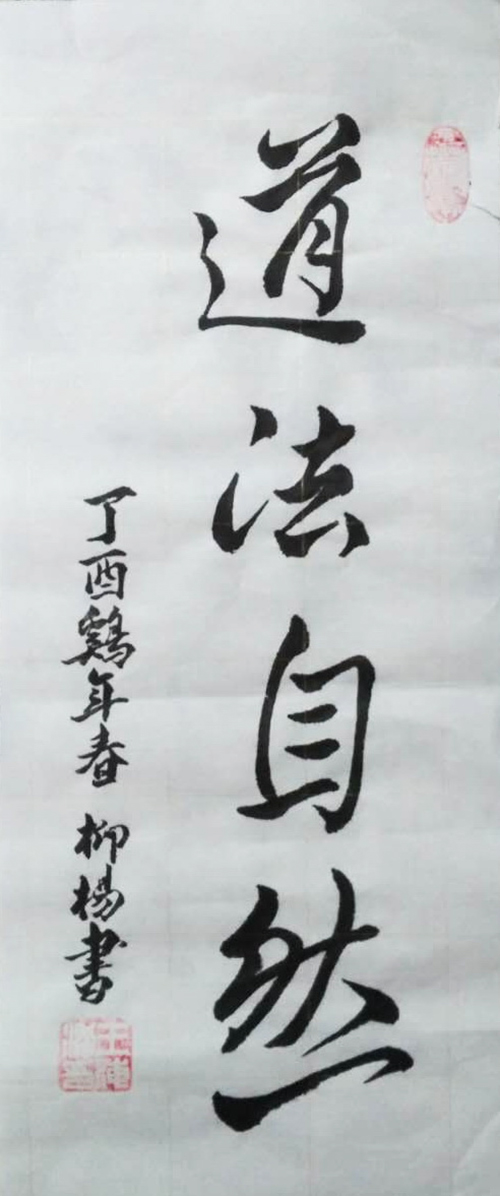 道法自然
丁酉鷄年春 柳楊書